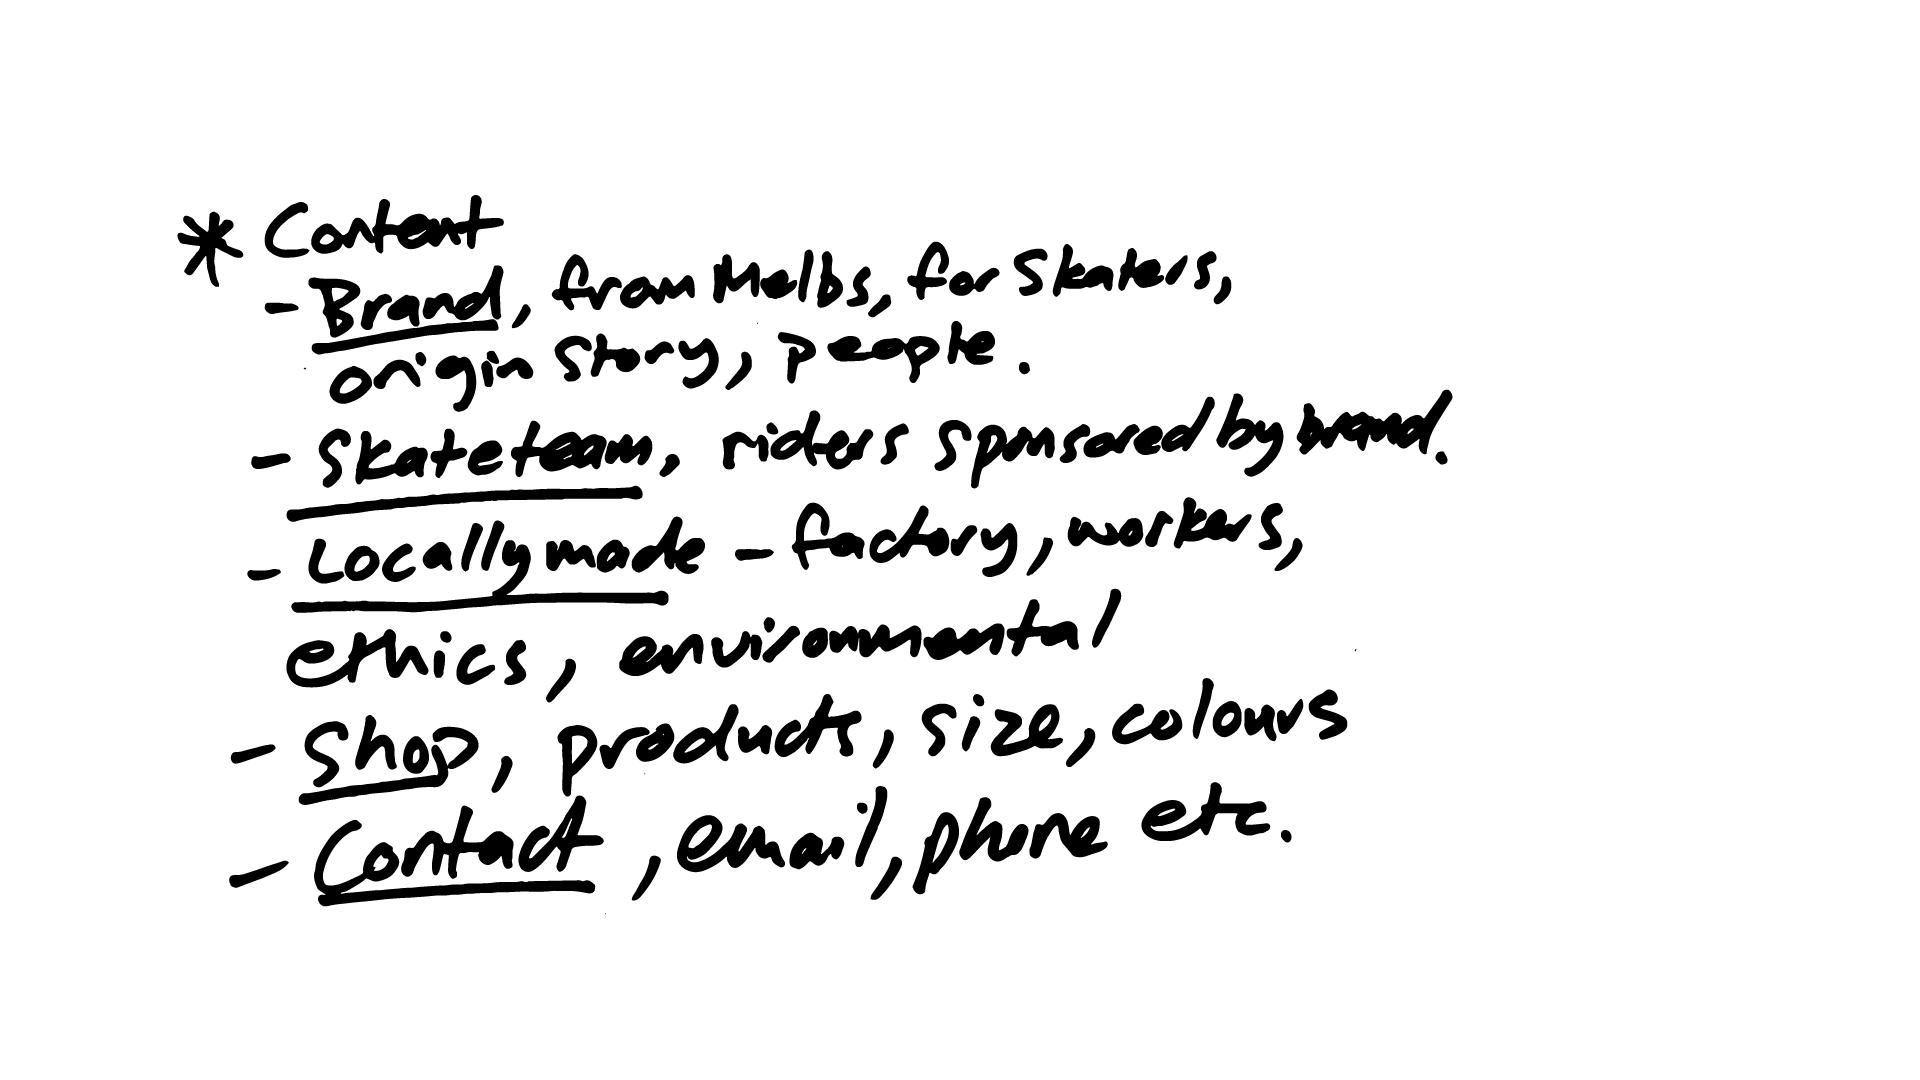 * Content
- Brand, from Melbs, for Skaters,
origin story, people.
- Skateteam, riders sponsored by brand.
- Locally made - factory, workers,
ethics, environmental
- Shop, products, size, colours
- Contact, email, phone etc.